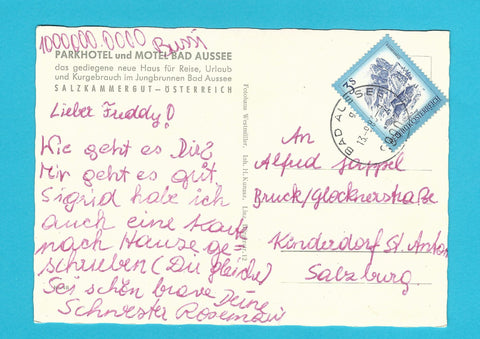 1000000.0000 Bussi
PARKHOTEL und MOTEL BAD AUSSEE
das gediegene neue Haus für Reise, Urlaub
und Kurgebrauch im Jungbrunnen Bad Aussee
SALZKAMMERGUT – ÖSTERREICH
Lieber Freddy!
Wie geht es Dir?
Mir geht es gut.
Sigrid hab ich
auch eine Karte
nach Hause ge-
schrieben (Die gleiche)
Sei schön brav Deine
Schwester Rosemarie
Fotohaus Westmüller, Inh. H. Kunaue, Linz
S3
REPUBLIK ÖSTERREICH
BAD AUSSEE
An
Alfred
Bruck/Glocknerstraße
Kinderdorf St. Anton
Salzburg.